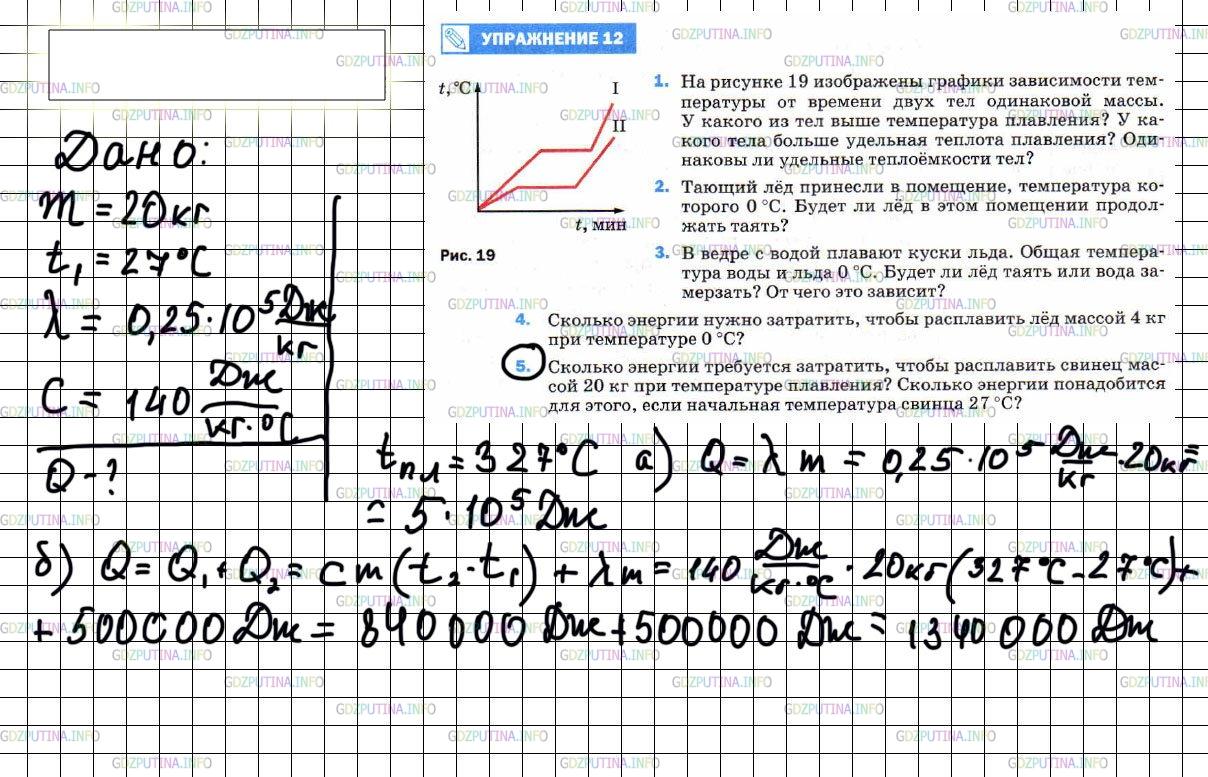 УПРАЖНЕНИЕ 12
t,°C
I
II
t, мин
Рис. 19
1. На рисунке 19 изображены графики зависимости тем-
пературы от времени двух тел одинаковой массы.
У какого из тел выше температура плавления? У ка-
кого тела больше удельная теплота плавления? Оди-
наковы ли удельные теплоёмкости тел?
2. Тающий лёд принесли в помещение, температура ко-
торого 0 °C. Будет ли лёд в этом помещении продол-
жать таять?
3. В ведре с водой плавают куски льда. Общая темпера-
тура воды и льда 0 °C. Будет ли лёд таять или вода за-
мерзать? От чего это зависит?
4. Сколько энергии нужно затратить, чтобы расплавить лёд массой 4 кг
при температуре 0 °C?
5. Сколько энергии требуется затратить, чтобы расплавить свинец мас-
сой 20 кг при температуре плавления? Сколько энергии понадобится
для этого, если начальная температура свинца 27 °C?
Дано:
m = 20кг
t₁ = 27°C
λ = 0,25·10⁵ Дж/кг
C = 140 Дж/кг·°C
Q - ?
tпл = 327°C а) Q = λ m = 0,25·10⁵ Дж/кг · 20кг =
= 5·10⁵ Дж
б) Q = Q₁ + Q₂ = cm(t₂ - t₁) + λm = 140 Дж/кг·°C · 20кг(327°C - 27°C) +
+ 500000 Дж = 840000 Дж + 500000 Дж = 1340000 Дж
GDZPUTINA.INFO